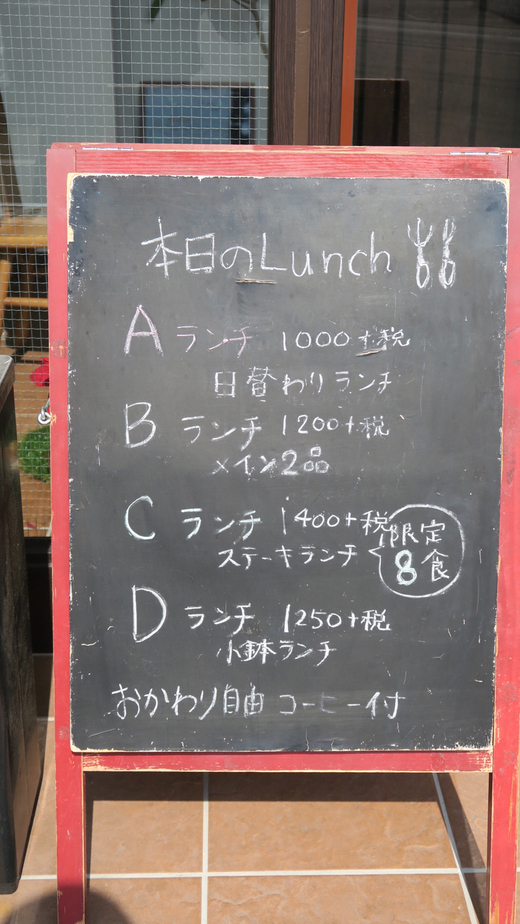 本日のLunch
Aランチ 1000+税
日替わりランチ
Bランチ 1200+税
メイン2品
Cランチ 1400+税
ステーキランチ
限定
8食
Dランチ 1250+税
小鉢ランチ
おかわり自由 コーヒー付